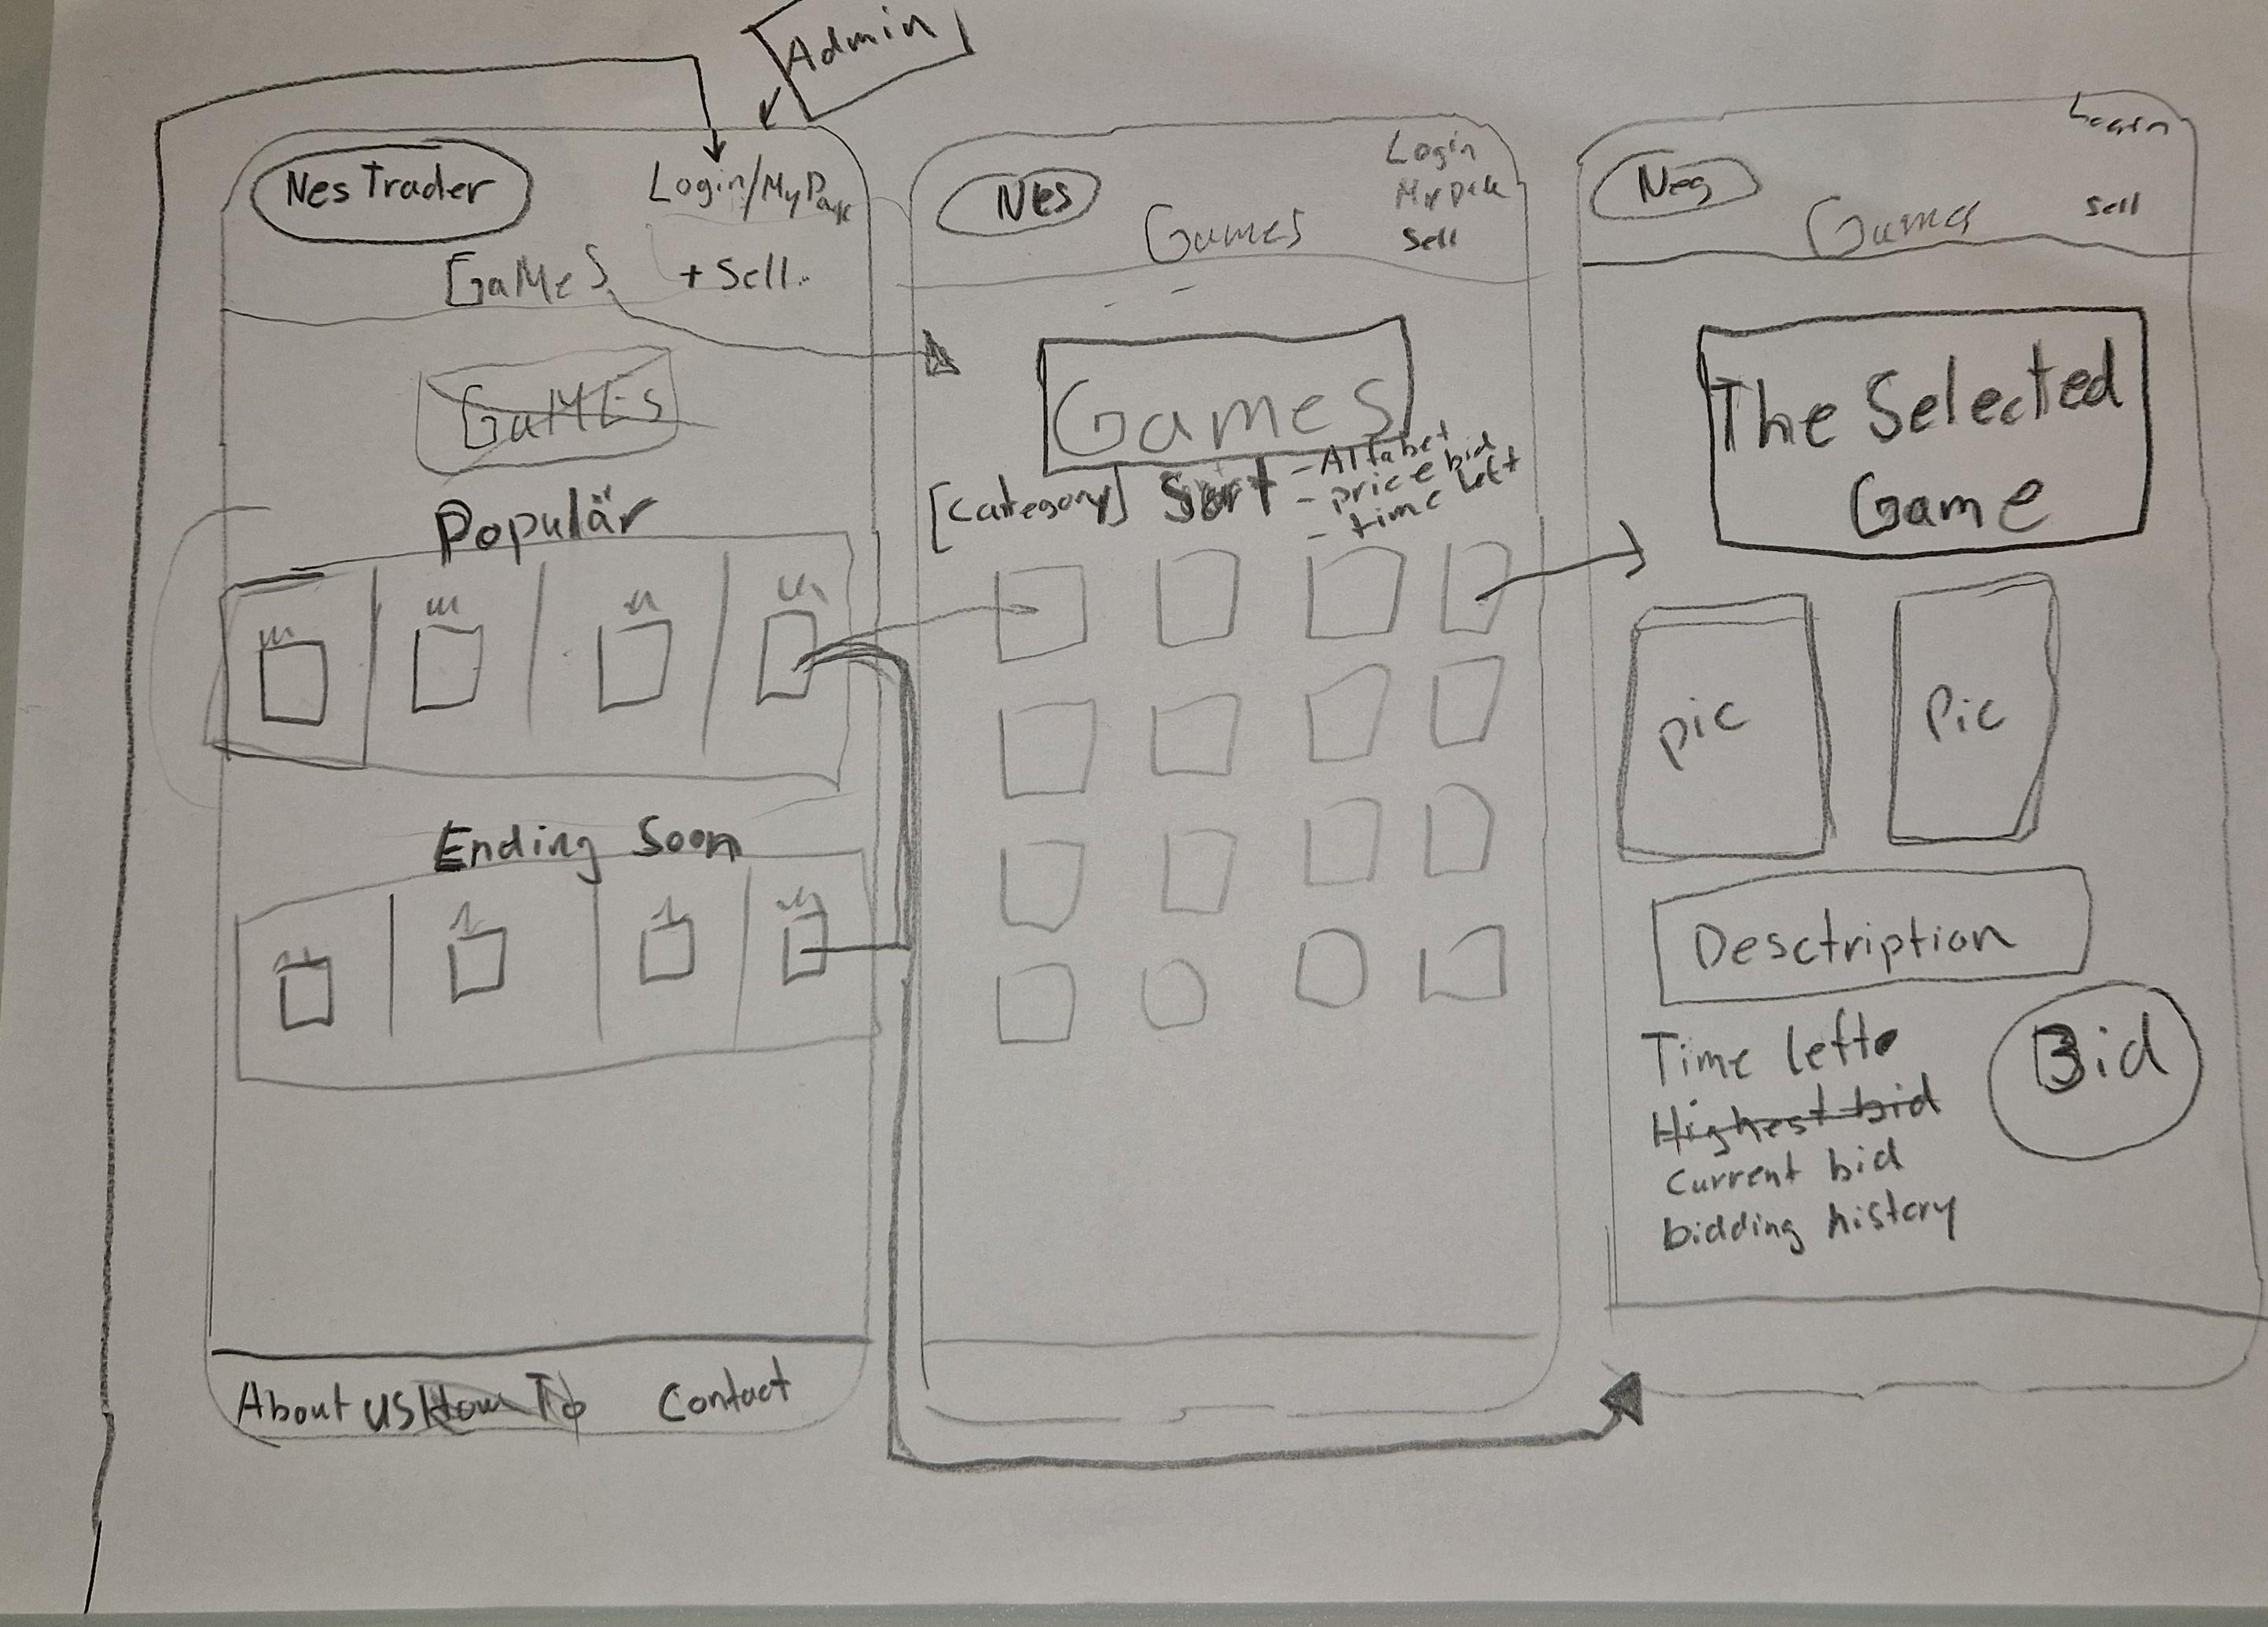 Admin
Nes Trader
Login/MyPage
GaMeS
+ Sell
GaMES
Populär
Ending Soon
About us How To Contact
Nes
Login
Games
Sell
Games
[Category] Sort - Alfabet
- price bid
- time left
Login
Games
Sell
The Selected
Game
pic
Pic
Desctription
Time left
Highest bid
Current bid
bidding history
Bid